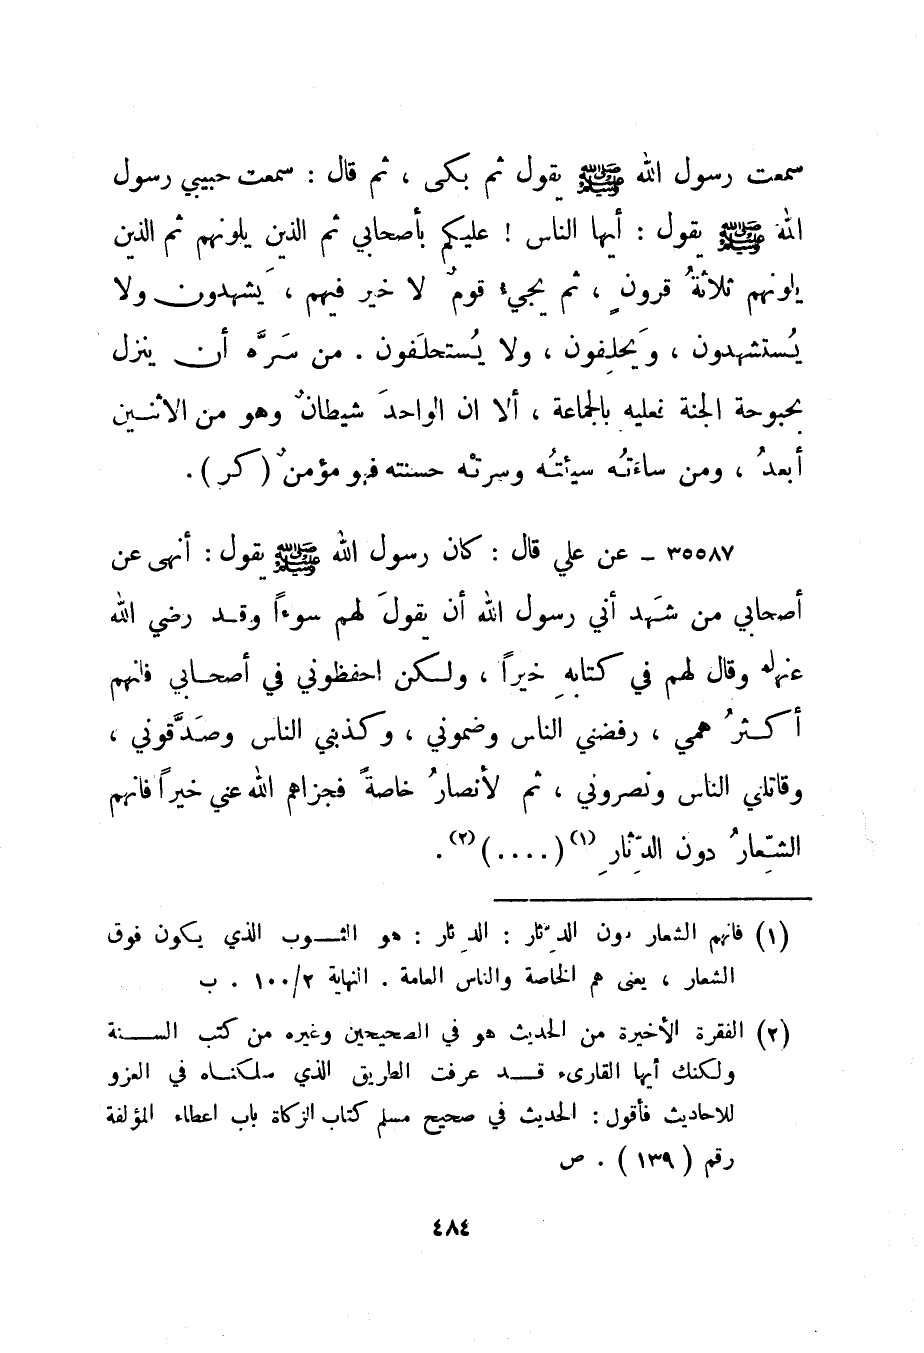 سمعت رسول الله ﷺ يقول ثم بكى ، ثم قال : سمعت حبيبي رسول
الله ﷺ يقول : أيها الناس ! عليكم بأصحابي ثم الذين يلونهم ثم الذين
يلونهم ثلاثةُ قرونٍ ، ثم يجيء قومٌ لا خير فيهم ، يَشهدون ولا
يُستشهدون ، ويَحلِفون ، ولا يُستحلَفون . من سَرَّه أن ينزل
بحبوحة الجنة فعليه بالجماعة ، ألا ان الواحدَ شيطانٌ وهو من الاثنين
أبعدُ ، ومن ساءتُه سيأتُه وسرتْه حسنته فهو مؤمنٌ ( كر ) .
٣٥٥٨٧ ــ عن علي قال : كان رسول الله ﷺ يقول : أنهى عن
أصحابي من شهَد أني رسول الله أن يقولَ لهم سوءاً وقد رضي الله
عنهم وقال لهم في كتابهِ خيراً ، ولكن احفظوني في أصحابي فانهم
أكثرُ همي ، رفضني الناس وضموني ، وكذبني الناس وصدَّقوني ،
وقاتلني الناس ونصروني ، ثم لأنصارُ خاصةً فجزاهم الله عني خيراً فانهم
الشّعارُ دون الدّثارِ (١) ( .... ) (٢) .
(١) فانهم الشعار دون الدِّثار : الدِثار : هو الثوب الذي يكون فوق
الشعار ، يعنى هم الخاصة والناس العامة . النهاية ١٠٠/٢ . ب
(٢) الفقرة الأخيرة من الحديث هو في الصحيحين وغيره من كتب السنة
ولكنك أيها القارىء قد عرفت الطريق الذي سلكناه في العزو
للاحاديث فأقول : الحديث في صحيح مسلم كتاب الزكاة باب اعطاء المؤلفة
رقم ( ١٣٩ ) . ص
٤٨٤